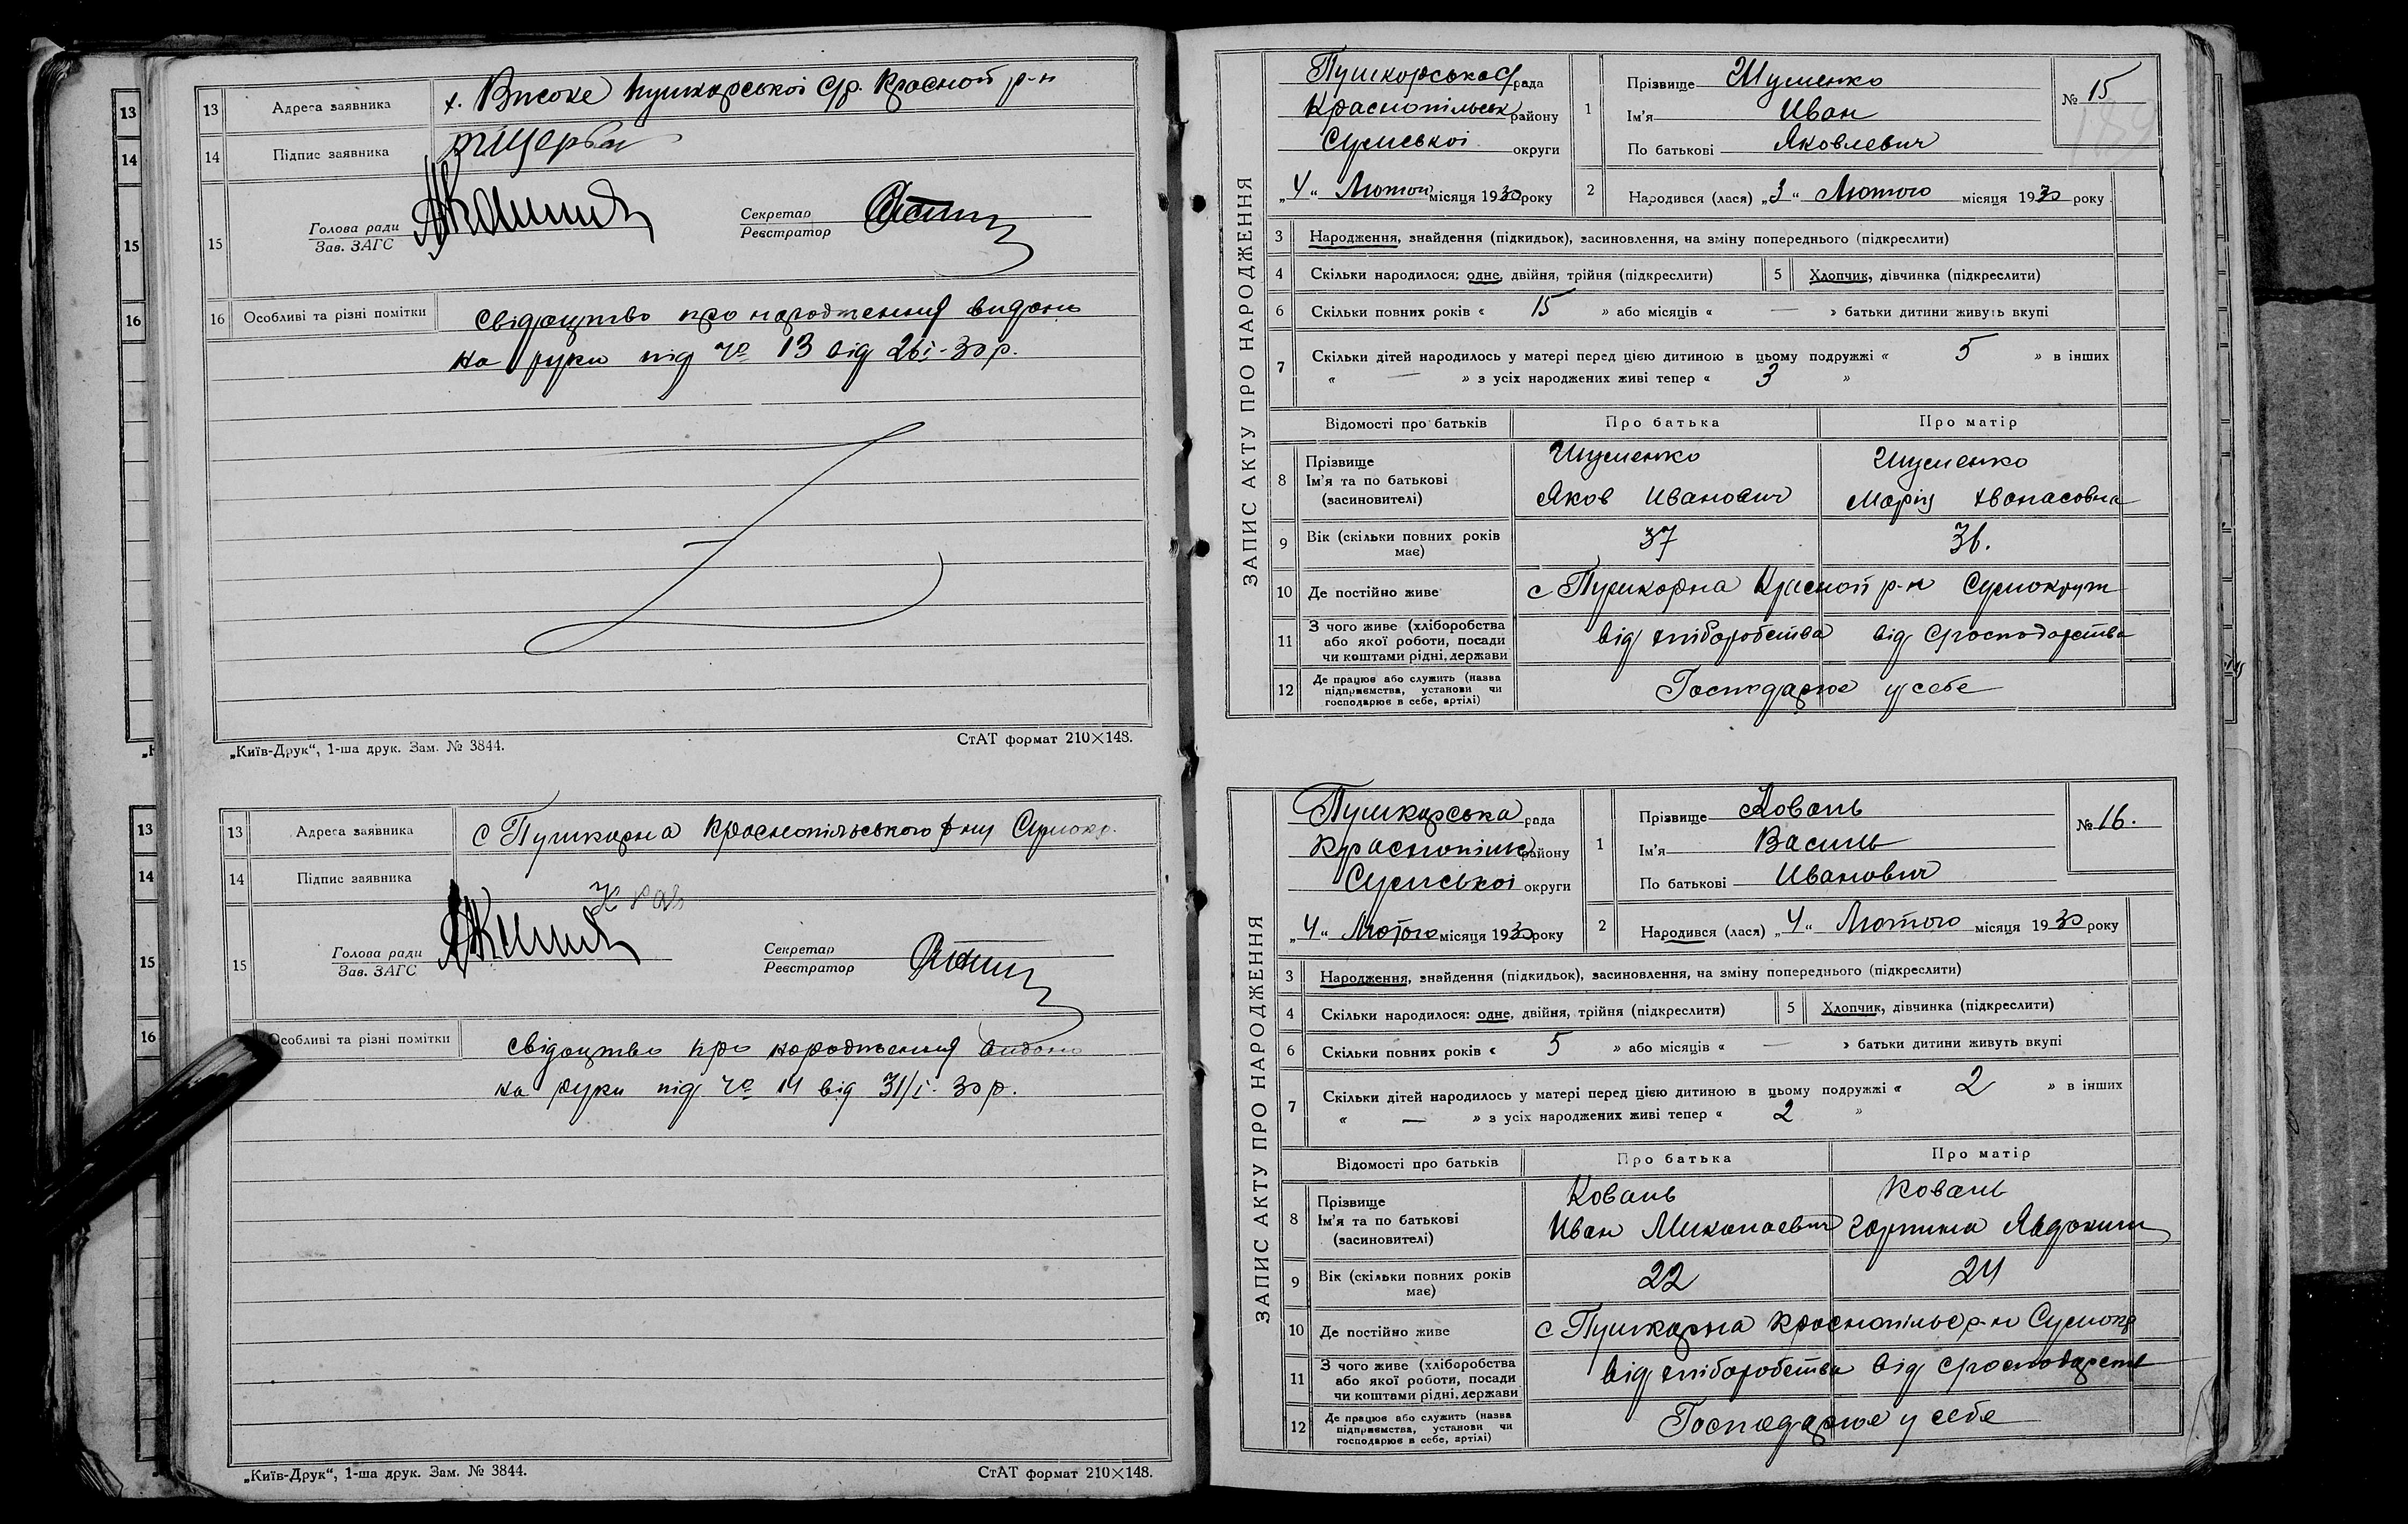 13 Адреса заявника х. Високе Пушкарської С/р. Красноп р-н
14 Підпис заявника
15 Голова ради
Зав. ЗАГС
Секретар
Реєстратор
16 Особливі та різні помітки Свідоцтво про народження видано
на руки під № 13 від 26/і-30 р.
„Київ-Друк“, 1-ша друк. Зам. № 3844. СтАТ формат 210×148.
13 Адреса заявника с Пушкарна Краснопільського р-ну Сумокр.
14 Підпис заявника
15 Голова ради
Зав. ЗАГС
Секретар
Реєстратор
Особливі та різні помітки Свідоцтво про народження видано
на руки під № 14 від 31/і-30 р.
„Київ-Друк“, 1-ша друк. Зам. № 3844. СтАТ формат 210×148.
ЗАПИС АКТУ ПРО НАРОДЖЕННЯ
Пушкарська С/рада
Краснопільськ району
Сумської округи
„4“ Лютого місяця 1930 року
1 Прізвище Шуменко
Ім'я Иван
По батькові Яковлевич
№ 15
189
2 Народився (лася) „3“ Лютого місяця 1930 року
3 Народження, знайдення (підкидьок), засиновлення, на зміну попереднього (підкреслити)
4 Скільки народилося: одне, двійня, трійня (підкреслити) 5 Хлопчик, дівчинка (підкреслити)
6 Скільки повних років « 15 » або місяців « — » батьки дитини живуть вкупі
7 Скільки дітей народилось у матері перед цією дитиною в цьому подружжі « 5 » в інших
« — » з усіх народжених живі тепер « 3 »
Відомості про батьків Про батька Про матір
8 Прізвище Шуменко Шуменко
Ім'я та по батькові Яков Иванович Марія Хванасовна
(засиновителі)
9 Вік (скільки повних років має) 37 36.
10 Де постійно живе с Пушкарна Красноп р-н Сумокруг
11 З чого живе (хліборобства
або якої роботи, посади від хліборобства від С/господарства
чи коштами рідні, держави
12 Де працює або служить (назва
підприємства, установи чи Господарює у себе
господарює в себе, артілі)
ЗАПИС АКТУ ПРО НАРОДЖЕННЯ
Пушкарська рада
Краснопільс району
Сумської округи
„4“ Лютого місяця 1930 року
1 Прізвище Коваль
Ім'я Василь
По батькові Иванович
№ 16.
2 Народився (лася) „4“ Лютого місяця 1930 року
3 Народження, знайдення (підкидьок), засиновлення, на зміну попереднього (підкреслити)
4 Скільки народилося: одне, двійня, трійня (підкреслити) 5 Хлопчик, дівчинка (підкреслити)
6 Скільки повних років « 5 » або місяців « — » батьки дитини живуть вкупі
7 Скільки дітей народилось у матері перед цією дитиною в цьому подружжі « 2 » в інших
« — » з усіх народжених живі тепер « 2 »
Відомості про батьків Про батька Про матір
8 Прізвище Коваль Коваль
Ім'я та по батькові Иван Миколаевич Горпина Явдоким
(засиновителі)
9 Вік (скільки повних років має) 22 24
10 Де постійно живе с Пушкарна Краснопільс р-н Сумокр
11 З чого живе (хліборобства
або якої роботи, посади від хліборобства від С/господарств
чи коштами рідні, держави
12 Де працює або служить (назва
підприємства, установи чи Господарює у себе
господарює в себе, артілі)